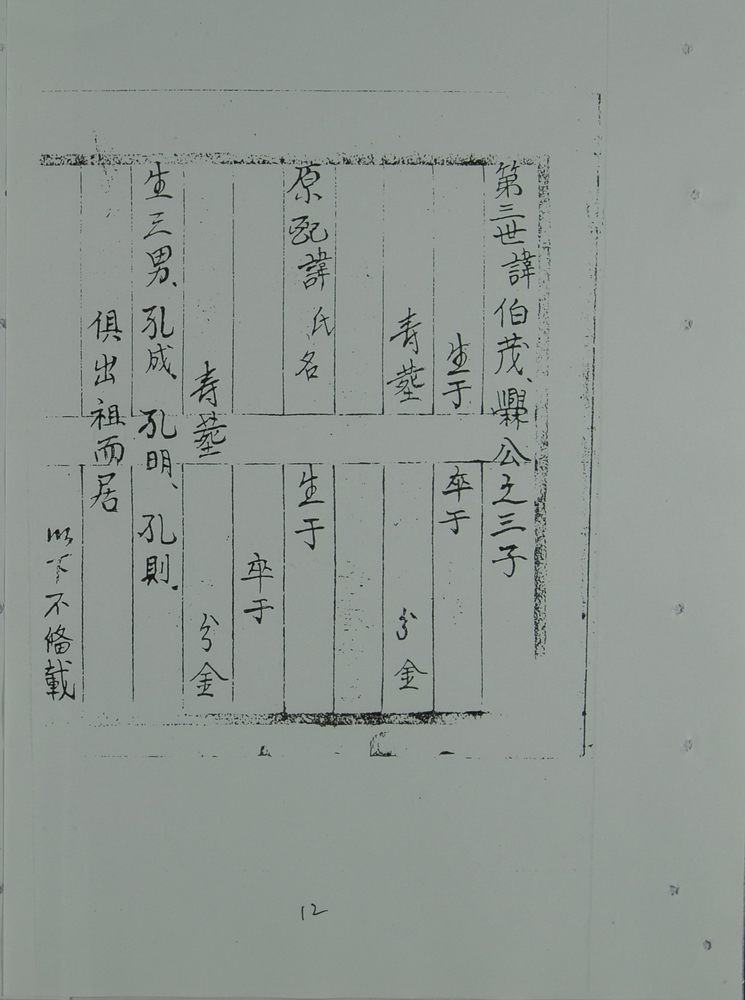 第三世諱伯茂、爨公之三子
生于 卒于
寿塋 分金
原配諱氏名 生于
卒于
寿塋 分金
生三男、孔成、孔明、孔則、
俱出祖而居
以下不俻載
12